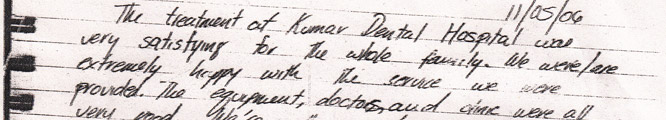 11/05/06
The treatment at Kumar Dental Hospital was
very satisfying for the whole family. We were/are
extremely happy with the service we were
provided. The equipment, doctors, and clinic were all
very good. We're